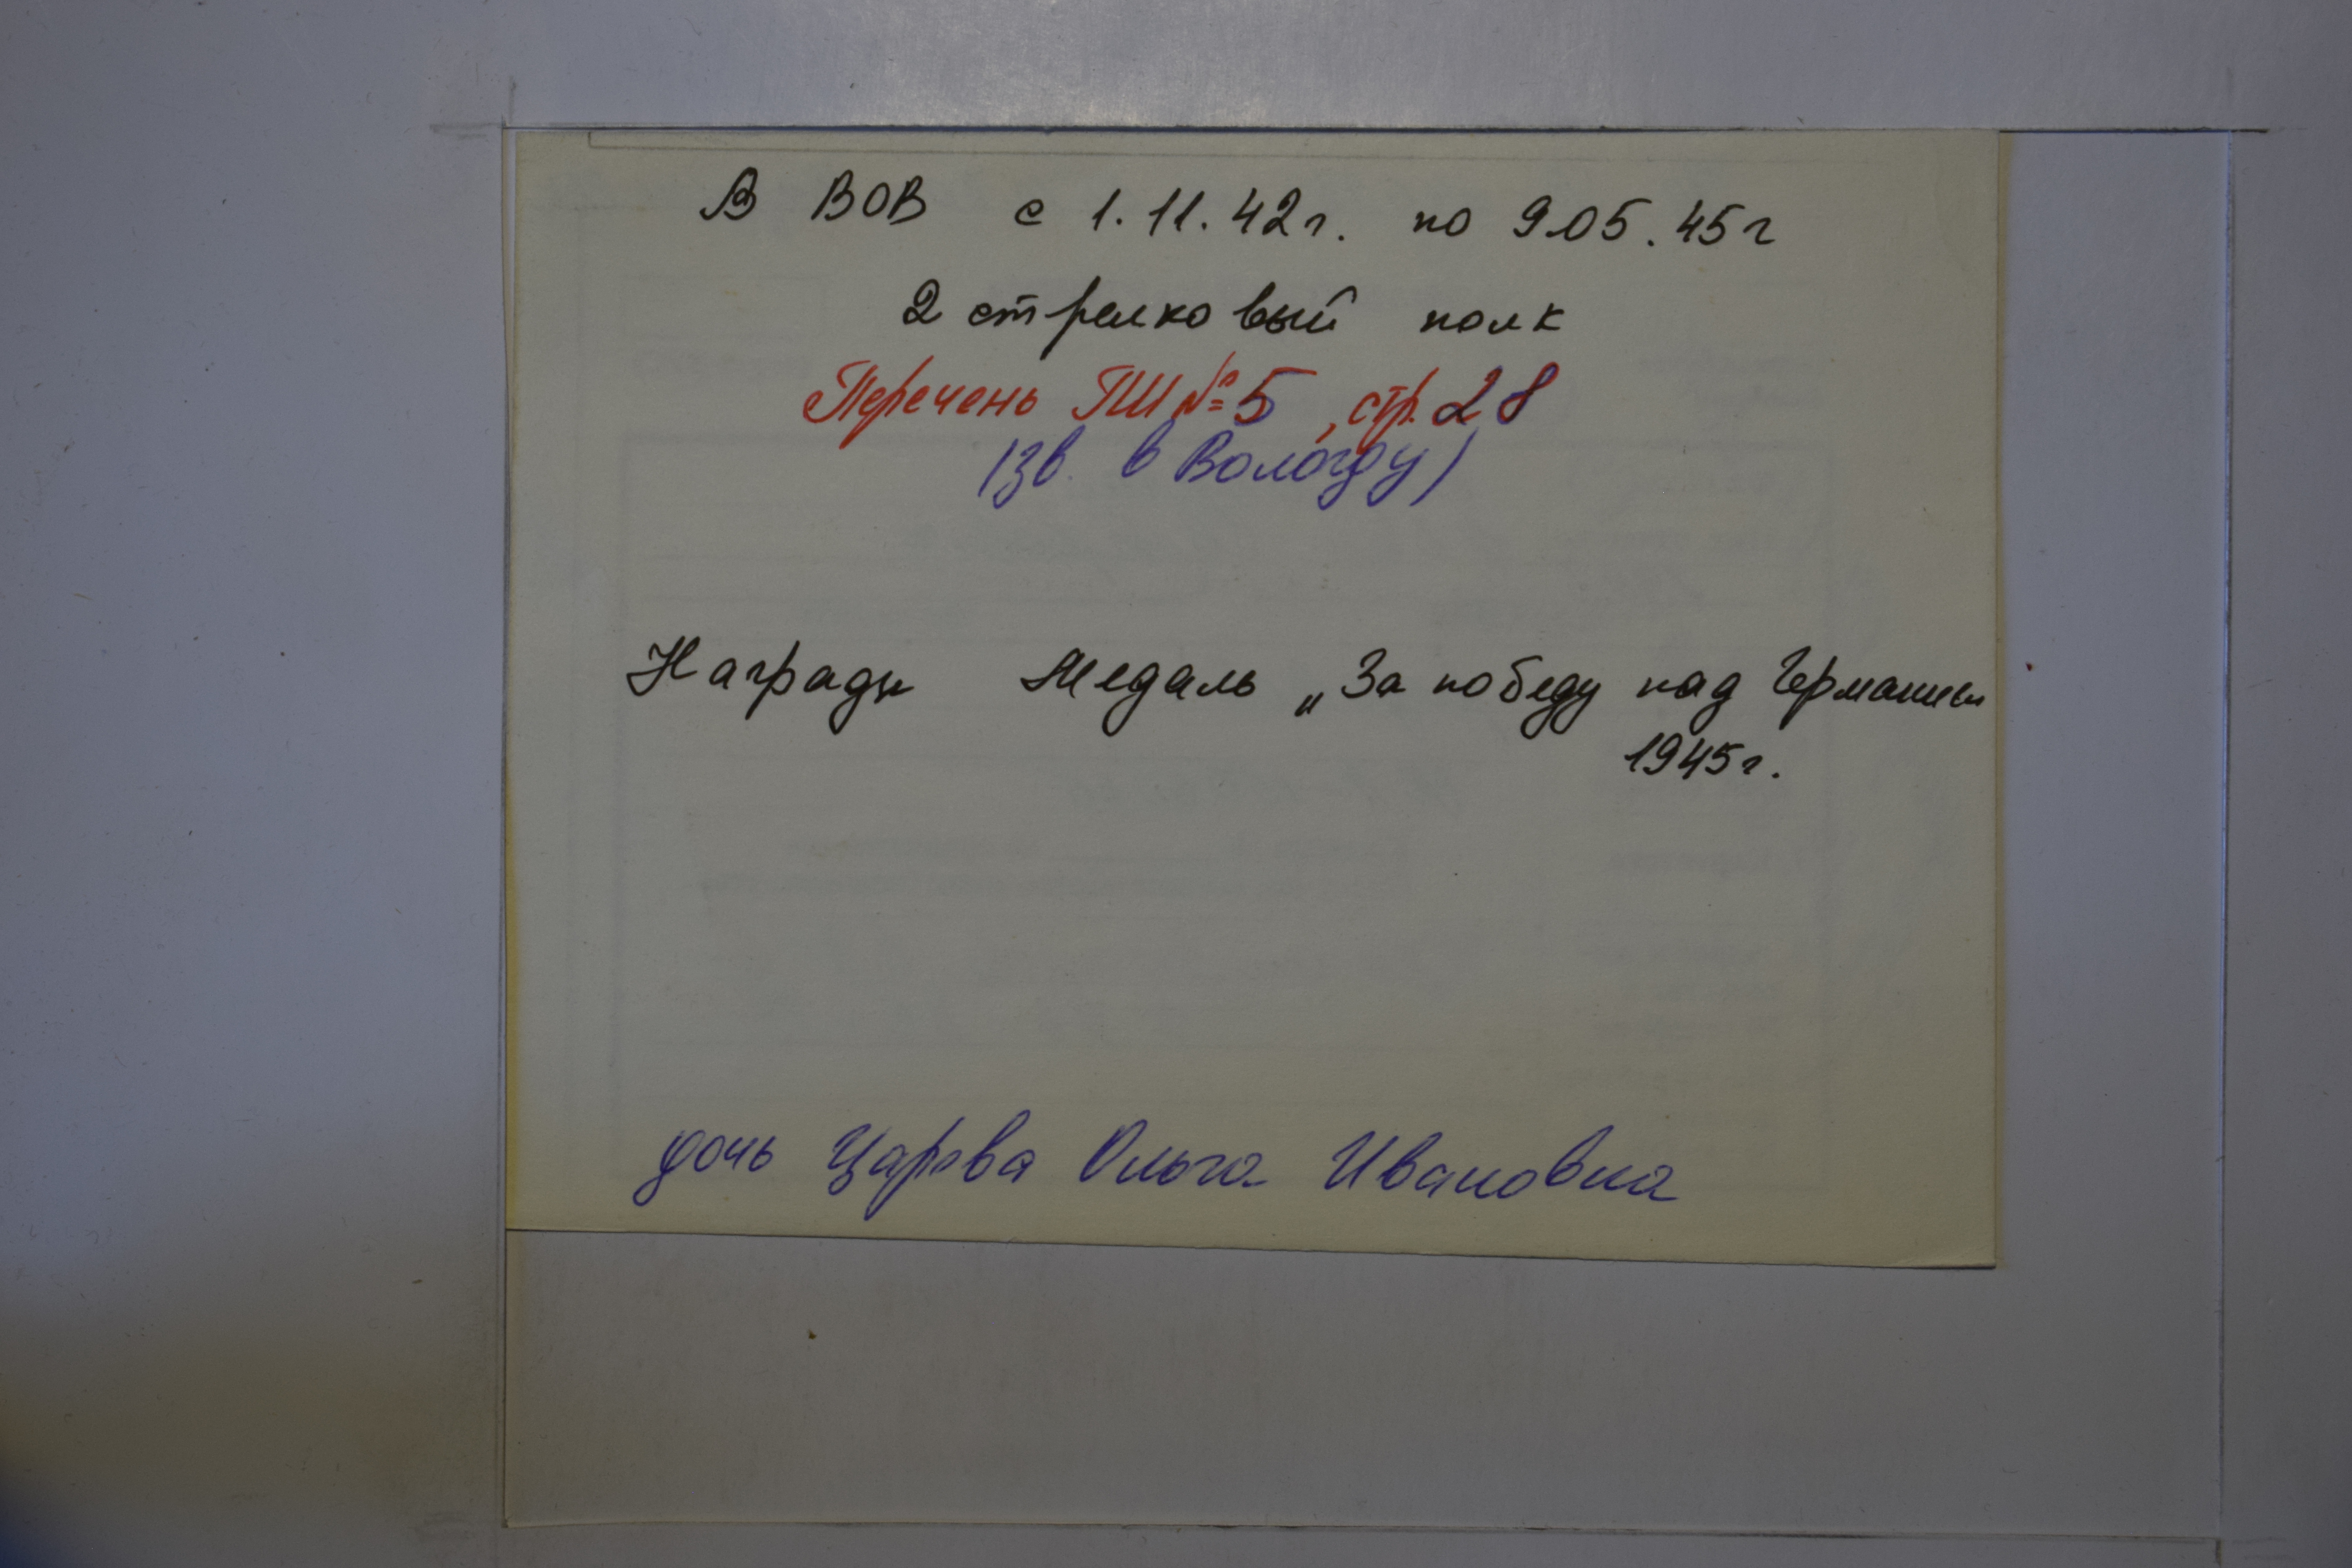 В ВОВ с 1.11.42г. по 9.05.45г
2 стрелковый полк
Перечень ПШ №5, стр. 28
(зв. в Вологду)
Награды Медаль „За победу над Германией
1945г.
дочь Царева Ольга Ивановна